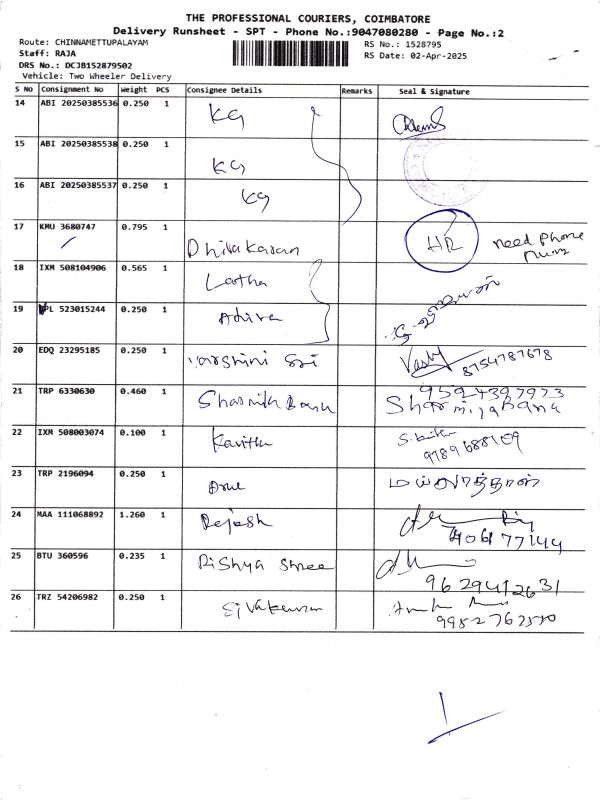 THE PROFESSIONAL COURIERS, COIMBATORE
Delivery Runsheet - SPT - Phone No.:9047080280 - Page No.:2
Route: CHINNAMETTUPALAYAM
RS No.: 1528795
Staff: RAJA
RS Date: 02-Apr-2025
DRS No.: DCJB152879502
Vehicle: Two Wheeler Delivery
S No Consignment No Weight PCS Consignee Details Remarks Seal & Signature
14 ABI 20250385536 0.250 1 KG
15 ABI 20250385538 0.250 1 KG
16 ABI 20250385537 0.250 1 KG
17 KMU 3680747 0.795 1 Dhivakaran HR need phone
18 IXM 508104906 0.565 1 Latha
19 PL 523015244 0.250 1
20 EDQ 23295185 0.250 1 Varshini Sri 8754787678
21 TRP 6330630 0.460 1 9594397973
Sharmila Banu
22 IXM 508003074 0.100 1 Kavitha
23 TRP 2196094 0.250 1
24 MAA 111068892 1.260 1 Rajesh
25 BTU 360596 0.235 1 Rishya Shree
9629412631
26 TRZ 54206982 0.250 1 Sivakumar